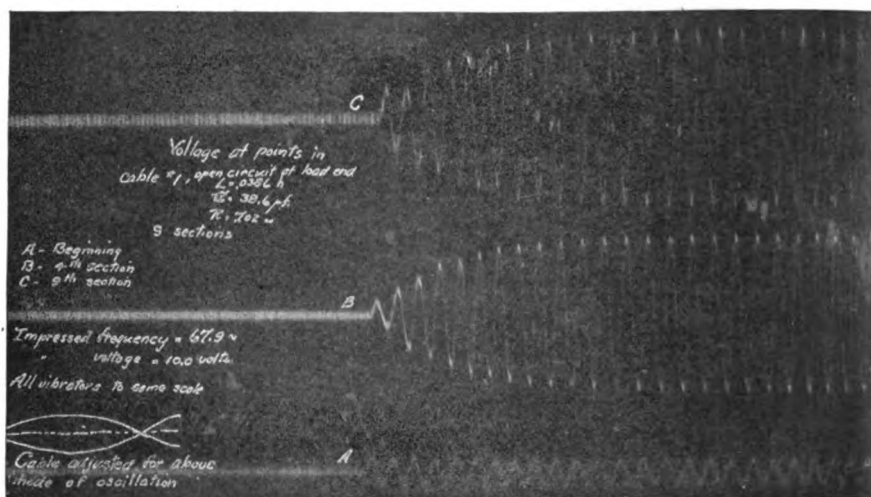 C
Voltage at points in
Cable #1, open circuit at load end
L = .0386 h
38.6 μf.
R = 7.02 ω
9 sections
A - Beginning
B - 4th section
C - 9th section
B
Impressed frequency = 67.9 ~
" voltage = 10.0 volts.
All vibrators to same scale
A
Cable adjusted for above
mode of oscillation